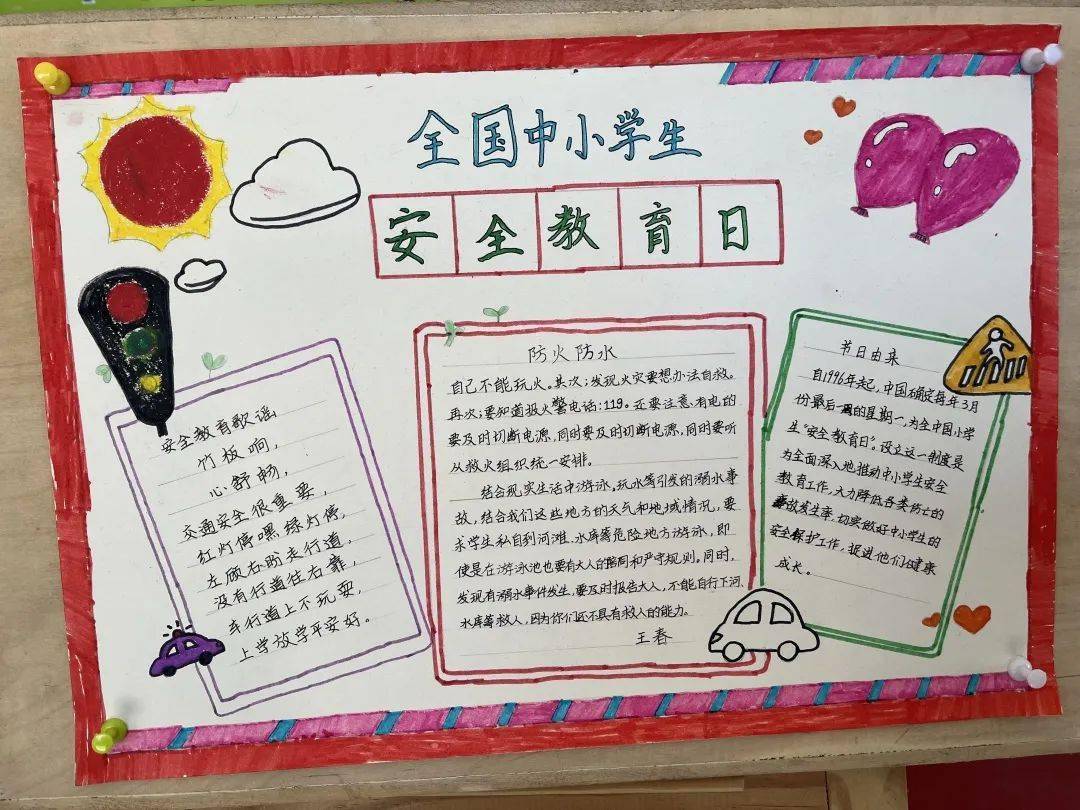 全国中小学生
安全教育日
安全教育歌谣
竹板响，
心舒畅，
交通安全很重要，
红灯停嘿绿灯停，
左顾右盼走行道，
没有行道往右靠，
车行道上不玩耍，
上学放学平安好。
防火防水
自己不能玩火。其次；发现火灾要想办法自救。
再次；要知道报火警电话：119。还要注意：有电的
要及时切断电源，同时要及时切断电源，同时要听
从救火组织统一安排。
结合现实生活中游泳，玩水等引发的溺水事
故，结合我们这些地方的天气和地域情况，要
求学生私自到河滩、水库等危险地方游泳，即
使是在游泳池也要有大人的陪同和严守规则。同时，
发现有溺水事件发生，要及时报告大人，不能自行下河、
水库等救人，因为你们还不具有救人的能力。
王春
节日由来
自1996年起，中国确定每年3月
份最后一周的星期一，为全中国小学
生“安全教育日”。设立这一制度是
为全面深入地推动中小学生安全
教育工作，大力降低各类伤亡的
事故发生率，切实做好中小学生的
安全保护工作，促进他们健康
成长。